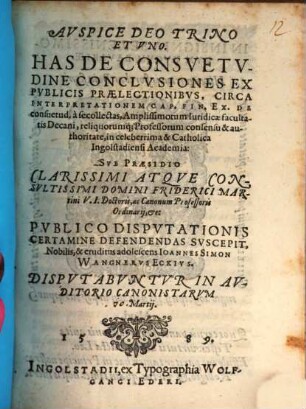 12
AVSPICE DEO TRINO
ET VNO.
HAS DE CONSVETV-
DINE CONCLVSIONES EX
PVBLICIS PRÆLECTIONIBVS, CIRCA
INTERPRETATIONEM CAP. FIN. EX. DE
consuetud, à se collectas, Amplissimorum Iuridicæ faculta-
tis Decani, reliquorumq; Professorum consensu & au-
thoritate, in celeberrima & Catholica
Ingolstadiensi Academia:
SVB PRÆSIDIO
CLARISSIMI ATQVE CON-
SVLTISSIMI DOMINI FRIDERICI MAR-
tini V. I. Doctoris, ac Canonum Professoris
Ordinarij, &c.
PVBLICO DISPVTATIONIS
CERTAMINE DEFENDENDAS SVSCEPIT,
Nobilis, & eruditus adolescens IOANNES SIMON
WANGNERVS ECKIVS.
DISPVTABVNTVR IN AV-
DITORIO CANONISTARVM
Martij.
1589.
INGOLSTADII, ex Typographia WOLF-
GANGI EDERI.